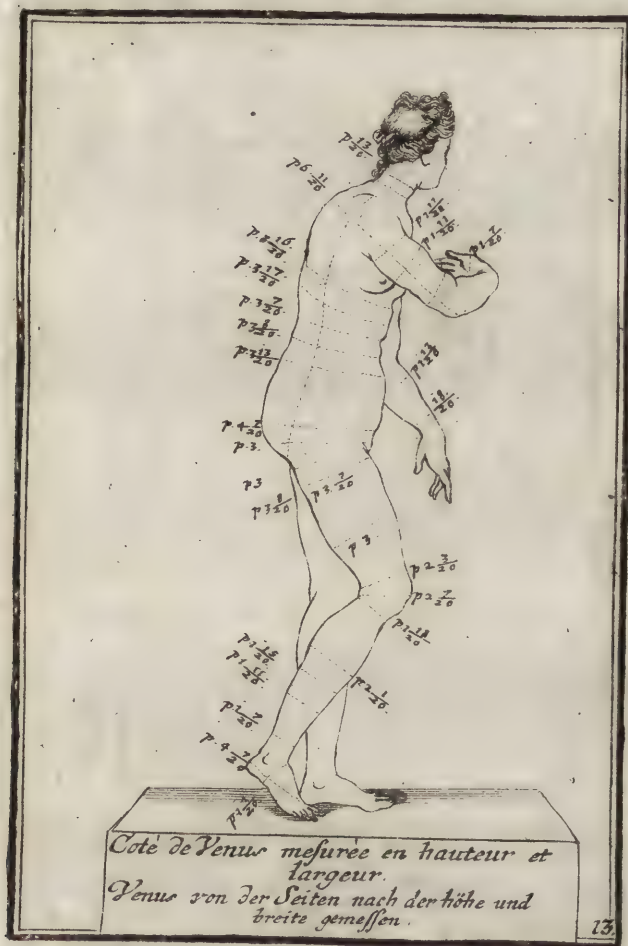 p 13/20
p 6 11/20
p 1 11/20
p 1 7/20
p. 3 17/20
p. 3 7/20
p. 3 13/20
p 1 13/20
18/20
p. 4 7/20
p. 3.
p 3
p 3. 7/20
p 3 8/20
p 3
p 2 3/20
p 2 7/20
p 1 18/20
p 1 15/20
p 1 11/20
p 2 1/20
p 2 7/20
p. 4 7/20
Coté de Venus mesurée en hauteur et
largeur.
Venus von der Seiten nach der höhe und
breite gemessen.
13.